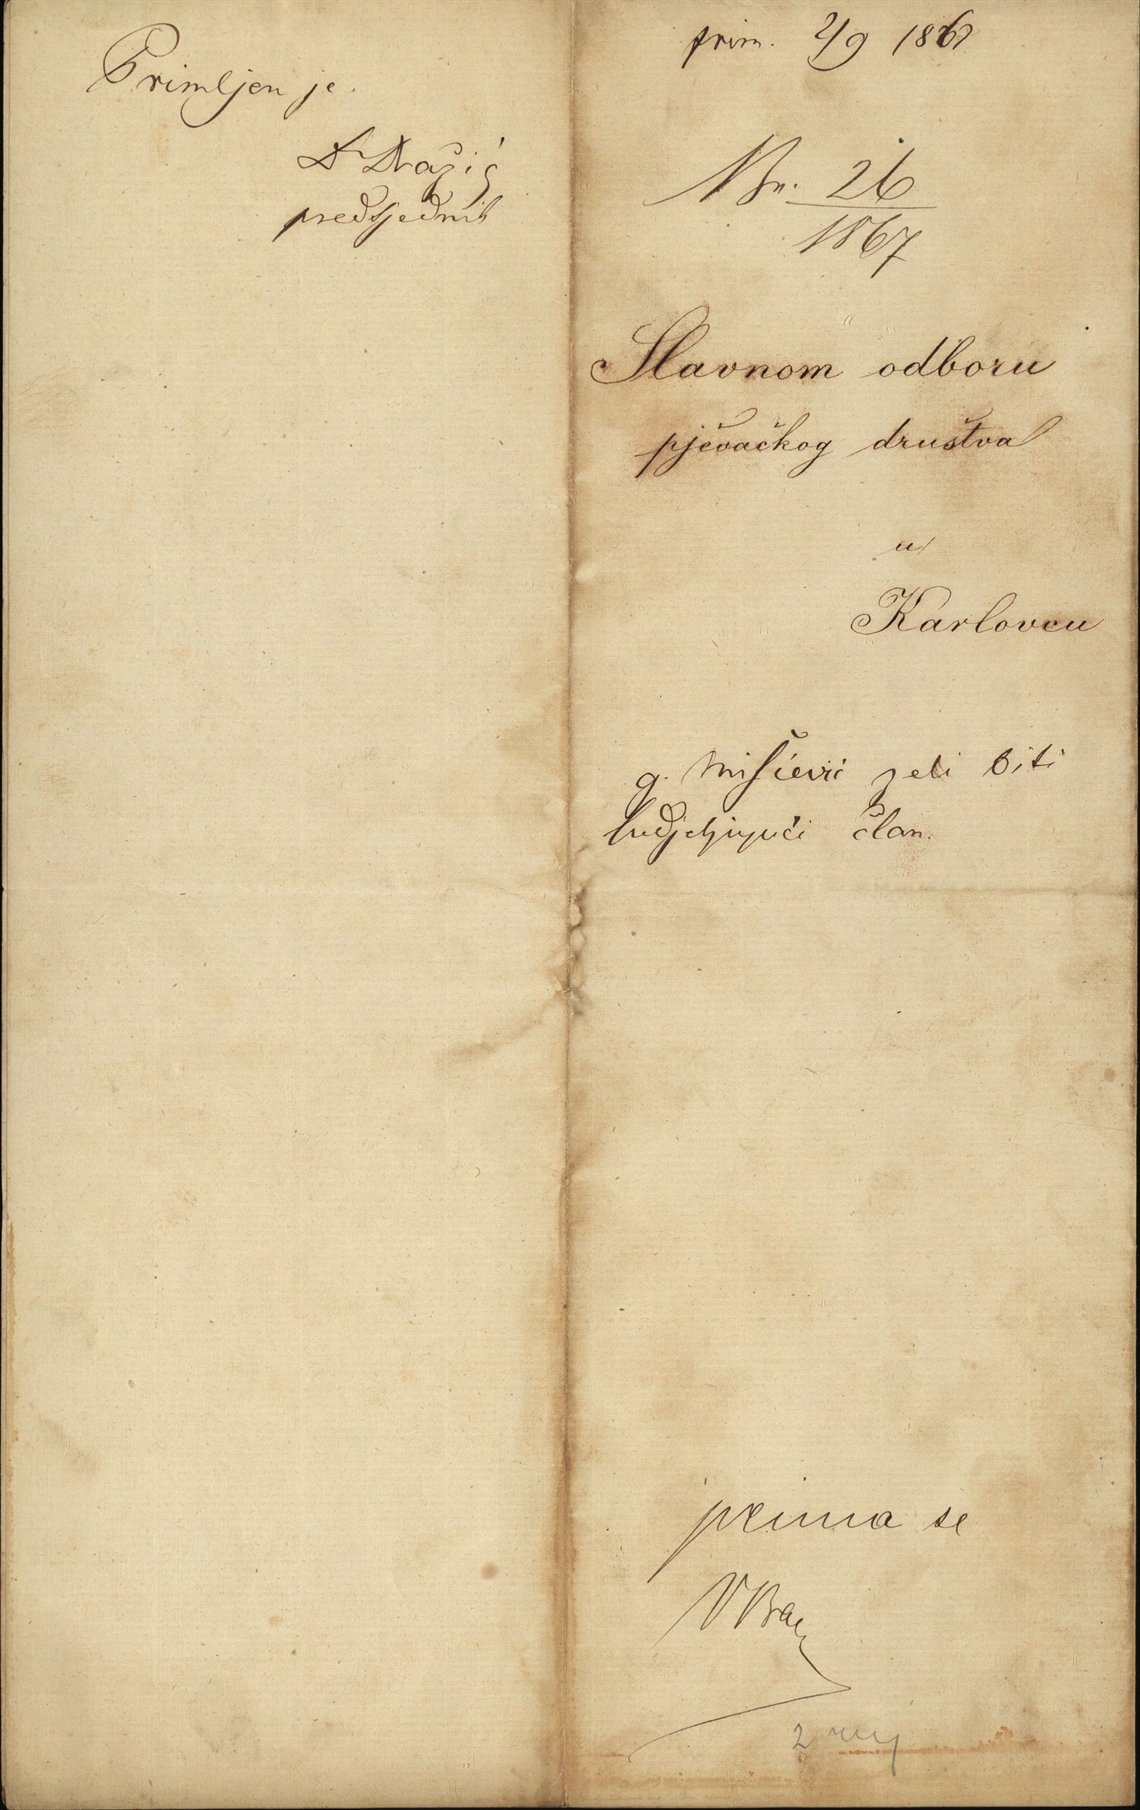 Primljen je.
predsjednik
prim. 2/9 1867
Nr. 26
1867
Slavnom odboru
pjevačkog društva
u
Karlovcu
g. Mišćević želi biti
sudjelujući član.
prima se
2